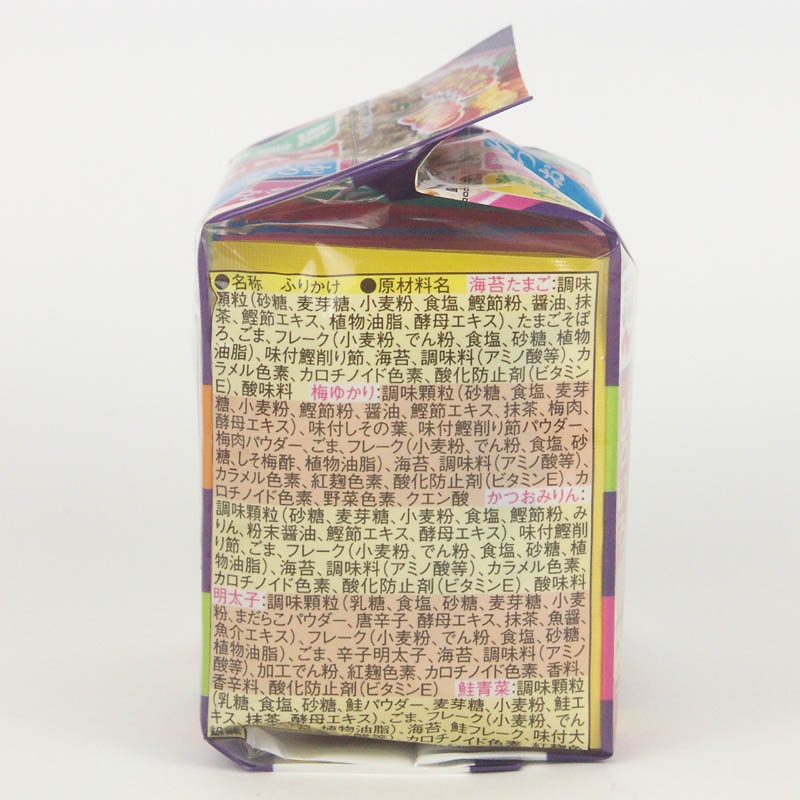 ●名称 ふりかけ ●原材料名 海苔たまご:調味
顆粒(砂糖、麦芽糖、小麦粉、食塩、鰹節粉、醤油、抹
茶、鰹節エキス、植物油脂、酵母エキス)、たまごそぼ
ろ、ごま、フレーク(小麦粉、でん粉、食塩、砂糖、植物
油脂)、味付鰹削り節、海苔、調味料(アミノ酸等)、カ
ラメル色素、カロチノイド色素、酸化防止剤(ビタミン
E)、酸味料 梅ゆかり:調味顆粒(砂糖、食塩、麦芽
糖、小麦粉、鰹節粉、醤油、鰹節エキス、抹茶、梅肉、
酵母エキス)、味付しその葉、味付鰹削り節パウダー、
梅肉パウダー、ごま、フレーク(小麦粉、でん粉、食塩、砂
糖、しそ梅酢、植物油脂)、海苔、調味料(アミノ酸等)、
カラメル色素、紅麹色素、酸化防止剤(ビタミンE)、カ
ロチノイド色素、野菜色素、クエン酸 かつおみりん:
調味顆粒(砂糖、麦芽糖、小麦粉、食塩、鰹節粉、み
りん、粉末醤油、鰹節エキス、酵母エキス)、味付鰹削
り節、ごま、フレーク(小麦粉、でん粉、食塩、砂糖、植
物油脂)、海苔、調味料(アミノ酸等)、カラメル色素、
カロチノイド色素、酸化防止剤(ビタミンE)、酸味料
明太子:調味顆粒(乳糖、食塩、砂糖、麦芽糖、小麦
粉、まだらこパウダー、唐辛子、酵母エキス、抹茶、魚醤、
魚介エキス)、フレーク(小麦粉、でん粉、食塩、砂糖、
植物油脂)、ごま、辛子明太子、海苔、調味料(アミノ
酸等)、加工でん粉、紅麹色素、カロチノイド色素、香料、
香辛料、酸化防止剤(ビタミンE) 鮭青菜:調味顆粒
(乳糖、食塩、砂糖、鮭パウダー、麦芽糖、小麦粉、鮭エ
キス、抹茶、酵母エキス)、ごま、フレーク(小麦粉、でん
植物油脂)、海苔、鮭フレーク、味付大
カロチノイド色素、紅麹色